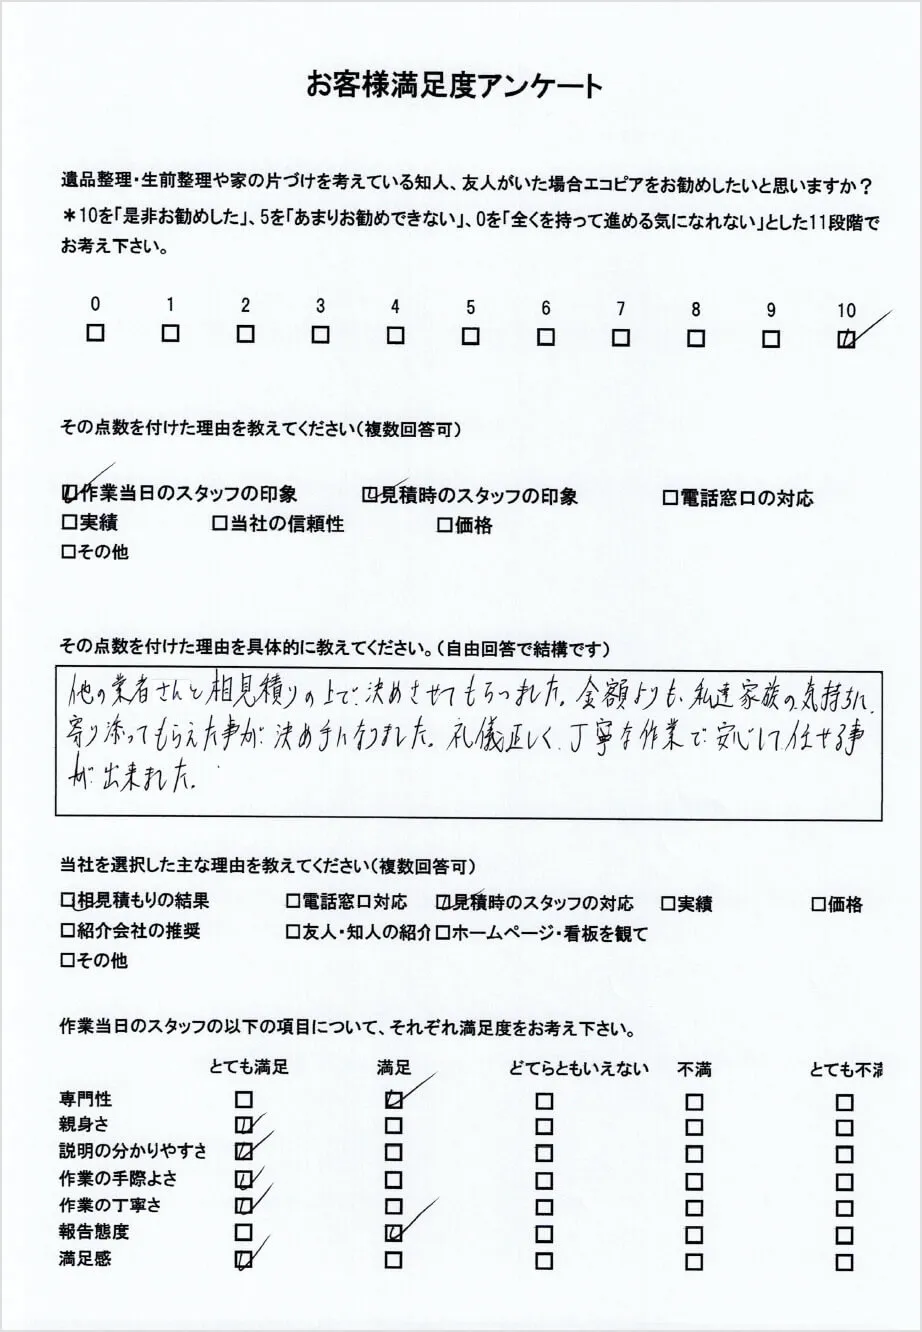 お客様満足度アンケート
遺品整理・生前整理や家の片づけを考えている知人、友人がいた場合エコピアをお勧めしたいと思いますか？
＊10を「是非お勧めした」、5を「あまりお勧めできない」、0を「全くを持って進める気になれない」とした11段階で
お考え下さい。
0 1 2 3 4 5 6 7 8 9 10
□ □ □ □ □ □ □ □ □ □ ☑
その点数を付けた理由を教えてください（複数回答可）
☑作業当日のスタッフの印象 ☑見積時のスタッフの印象 □電話窓口の対応
□実績 □当社の信頼性 □価格
□その他
その点数を付けた理由を具体的に教えてください。（自由回答で結構です）
他の業者さんと相見積りの上で、決めさせてもらいました。金額よりも、私達家族の気持ちに、
寄り添ってもらえた事が、決め手になりました。礼儀正しく、丁寧な作業で安心して任せる事
が出来ました。
当社を選択した主な理由を教えてください（複数回答可）
☑相見積もりの結果 □電話窓口対応 ☑見積時のスタッフの対応 □実績 □価格
□紹介会社の推奨 □友人・知人の紹介 □ホームページ・看板を観て
□その他
作業当日のスタッフの以下の項目について、それぞれ満足度をお考え下さい。
とても満足 満足 どてらともいえない 不満 とても不満
専門性 □ ☑ □ □ □
親身さ ☑ □ □ □ □
説明の分かりやすさ ☑ □ □ □ □
作業の手際よさ ☑ □ □ □ □
作業の丁寧さ ☑ □ □ □ □
報告態度 □ ☑ □ □ □
満足感 ☑ □ □ □ □